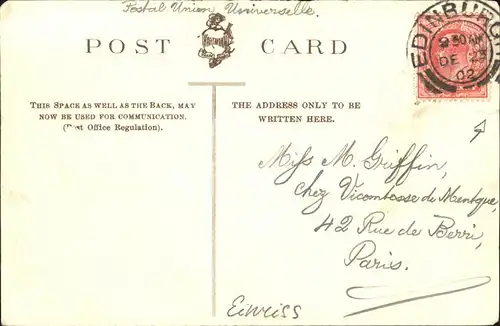 Postal Union Universelle.
POST CARD
EDINBURGH
9 30 AM
DE 23
02
THIS SPACE AS WELL AS THE BACK, MAY
NOW BE USED FOR COMMUNICATION.
(Post Office Regulation).
THE ADDRESS ONLY TO BE
WRITTEN HERE.
Miss M. Griffin,
chez Vicomtesse de
42 Rue de Berri,
Paris.
Eiweiss